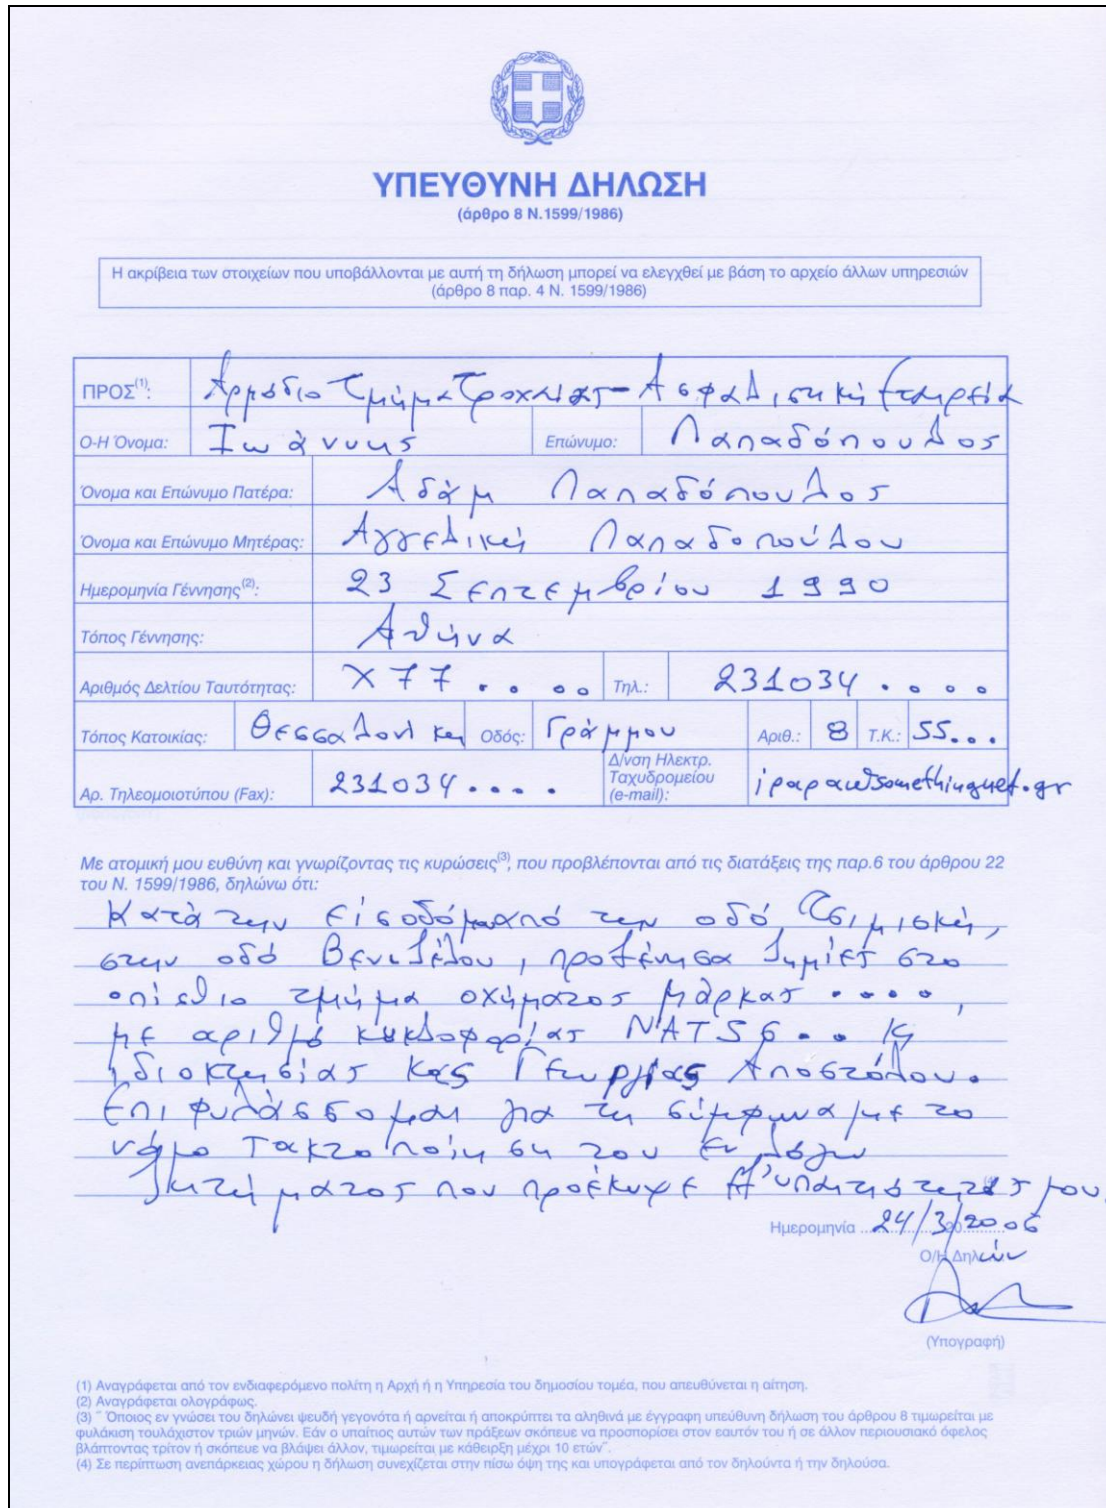 ΥΠΕΥΘΥΝΗ ΔΗΛΩΣΗ
(άρθρο 8 Ν.1599/1986)
Η ακρίβεια των στοιχείων που υποβάλλονται με αυτή τη δήλωση μπορεί να ελεγχθεί με βάση το αρχείο άλλων υπηρεσιών
(άρθρο 8 παρ. 4 Ν. 1599/1986)
ΠΡΟΣ(1): Αρμόδιο Τμήμα Τροχαίας - Ασφαλιστική Εταιρεία
Ο-Η Όνομα: Ιωάννης Επώνυμο: Παπαδόπουλος
Όνομα και Επώνυμο Πατέρα: Αδάμ Παπαδόπουλος
Όνομα και Επώνυμο Μητέρας: Αγγελική Παπαδοπούλου
Ημερομηνία Γέννησης(2): 23 Σεπτεμβρίου 1990
Τόπος Γέννησης: Αθήνα
Αριθμός Δελτίου Ταυτότητας: Χ77 . . . . Τηλ.: 231034 . . . .
Τόπος Κατοικίας: Θεσσαλονίκη Οδός: Γράμμου Αριθ.: 8 Τ.Κ.: 55...
Αρ. Τηλεομοιοτύπου (Fax): 231034 . . . . Δ/νση Ηλεκτρ. Ταχυδρομείου (e-mail): ipapaw@somethingnet.gr
Με ατομική μου ευθύνη και γνωρίζοντας τις κυρώσεις(3), που προβλέπονται από τις διατάξεις της παρ.6 του άρθρου 22
του Ν. 1599/1986, δηλώνω ότι:
Κατά την είσοδό μου από την οδό Τσιμισκή,
στην οδό Βενιζέλου, προξένησα ζημίες στο
οπίσθιο τμήμα οχήματος μάρκας . . . . ,
με αριθμό κυκλοφορίας ΝΑΤ56 . .
ιδιοκτησίας Κας Γεωργίας Αποστόλου.
Επιφυλάσσομαι για τη σύμφωνα με το
νόμο τακτοποίηση του εν λόγω
ζητήματος που προέκυψε εξ' υπαιτιότητάς μου.
Ημερομηνία 24/3/2006
Ο/Η Δηλών
(Υπογραφή)
(1) Αναγράφεται από τον ενδιαφερόμενο πολίτη η Αρχή ή η Υπηρεσία του δημοσίου τομέα, που απευθύνεται η αίτηση.
(2) Αναγράφεται ολογράφως.
(3) ¨ Όποιος εν γνώσει του δηλώνει ψευδή γεγονότα ή αρνείται ή αποκρύπτει τα αληθινά με έγγραφη υπεύθυνη δήλωση του άρθρου 8 τιμωρείται με
φυλάκιση τουλάχιστον τριών μηνών. Εάν ο υπαίτιος αυτών των πράξεων σκόπευε να προσπορίσει στον εαυτόν του ή σε άλλον περιουσιακό όφελος
βλάπτοντας τρίτον ή σκόπευε να βλάψει άλλον, τιμωρείται με κάθειρξη μέχρι 10 ετών¨.
(4) Σε περίπτωση ανεπάρκειας χώρου η δήλωση συνεχίζεται στην πίσω όψη της και υπογράφεται από τον δηλούντα ή την δηλούσα.